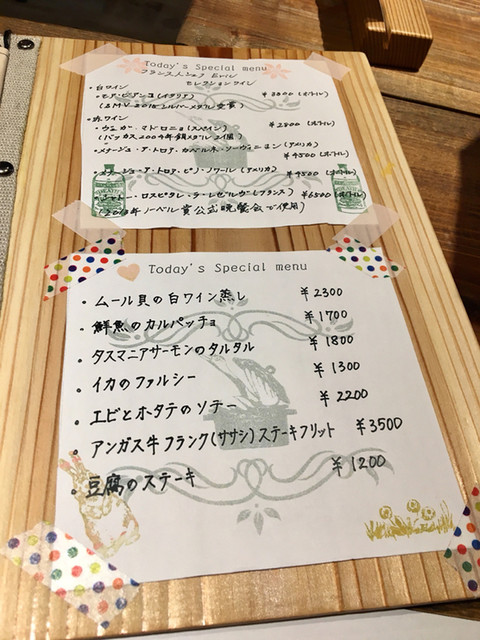 Today's Special menu
フランス人シェフ
セレクションワイン
・白ワイン
(イタリア) ¥3800 (ボトル)
シルバーメダル受賞)
・赤ワイン
マドロニョ(スペイン) ¥2800 (ボトル)
・メタージュ・ア・トロワ、カベルネ・ソーヴィニヨン(アメリカ)
¥4500 (ボトル)
・メナージュ・ア・トロワ、ピノ・ノワール(アメリカ) ¥4500 (ボトル)
ロスピタレ・ラ・レゼルヴ(フランス) ¥6500 (ボトル)
ノーベル賞公式晩餐会で使用)
Today's Special menu
・ムール貝の白ワイン蒸し ¥2300
・鮮魚のカルパッチョ ¥1700
・タスマニアサーモンのタルタル ¥1800
・イカのファルシー ¥1300
・エビとホタテのソテー ¥2200
・アンガス牛フランク(ササシ)ステーキフリット ¥3500
・豆腐のステーキ ¥1200